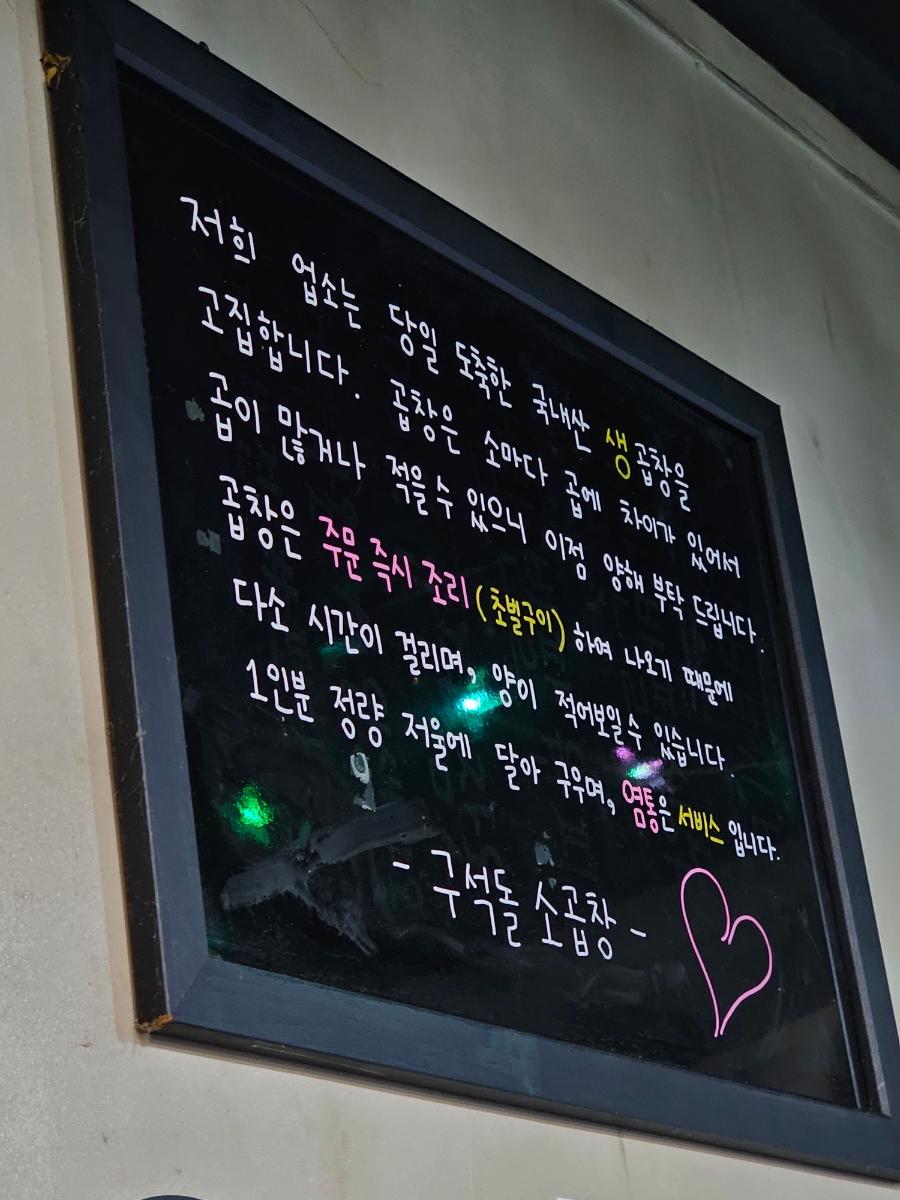 저희 업소는 당일 도축한 국내산 생곱창을
고집합니다. 곱창은 소마다 곱에 차이가 있어서
곱이 많거나 적을 수 있으니 이점 양해 부탁 드립니다.
곱창은 주문 즉시 조리(초벌구이)하여 나오기 때문에
다소 시간이 걸리며, 양이 적어보일 수 있습니다.
1인분 정량 저울에 달아 구우며, 염통은 서비스 입니다.
- 구석돌 소곱창 -